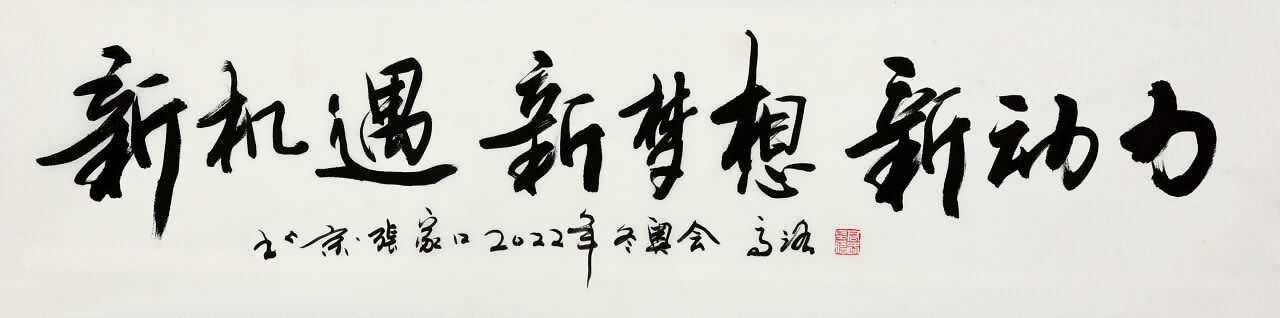 新机遇 新梦想 新动力
北京·張家口2022年冬奥会 高洪